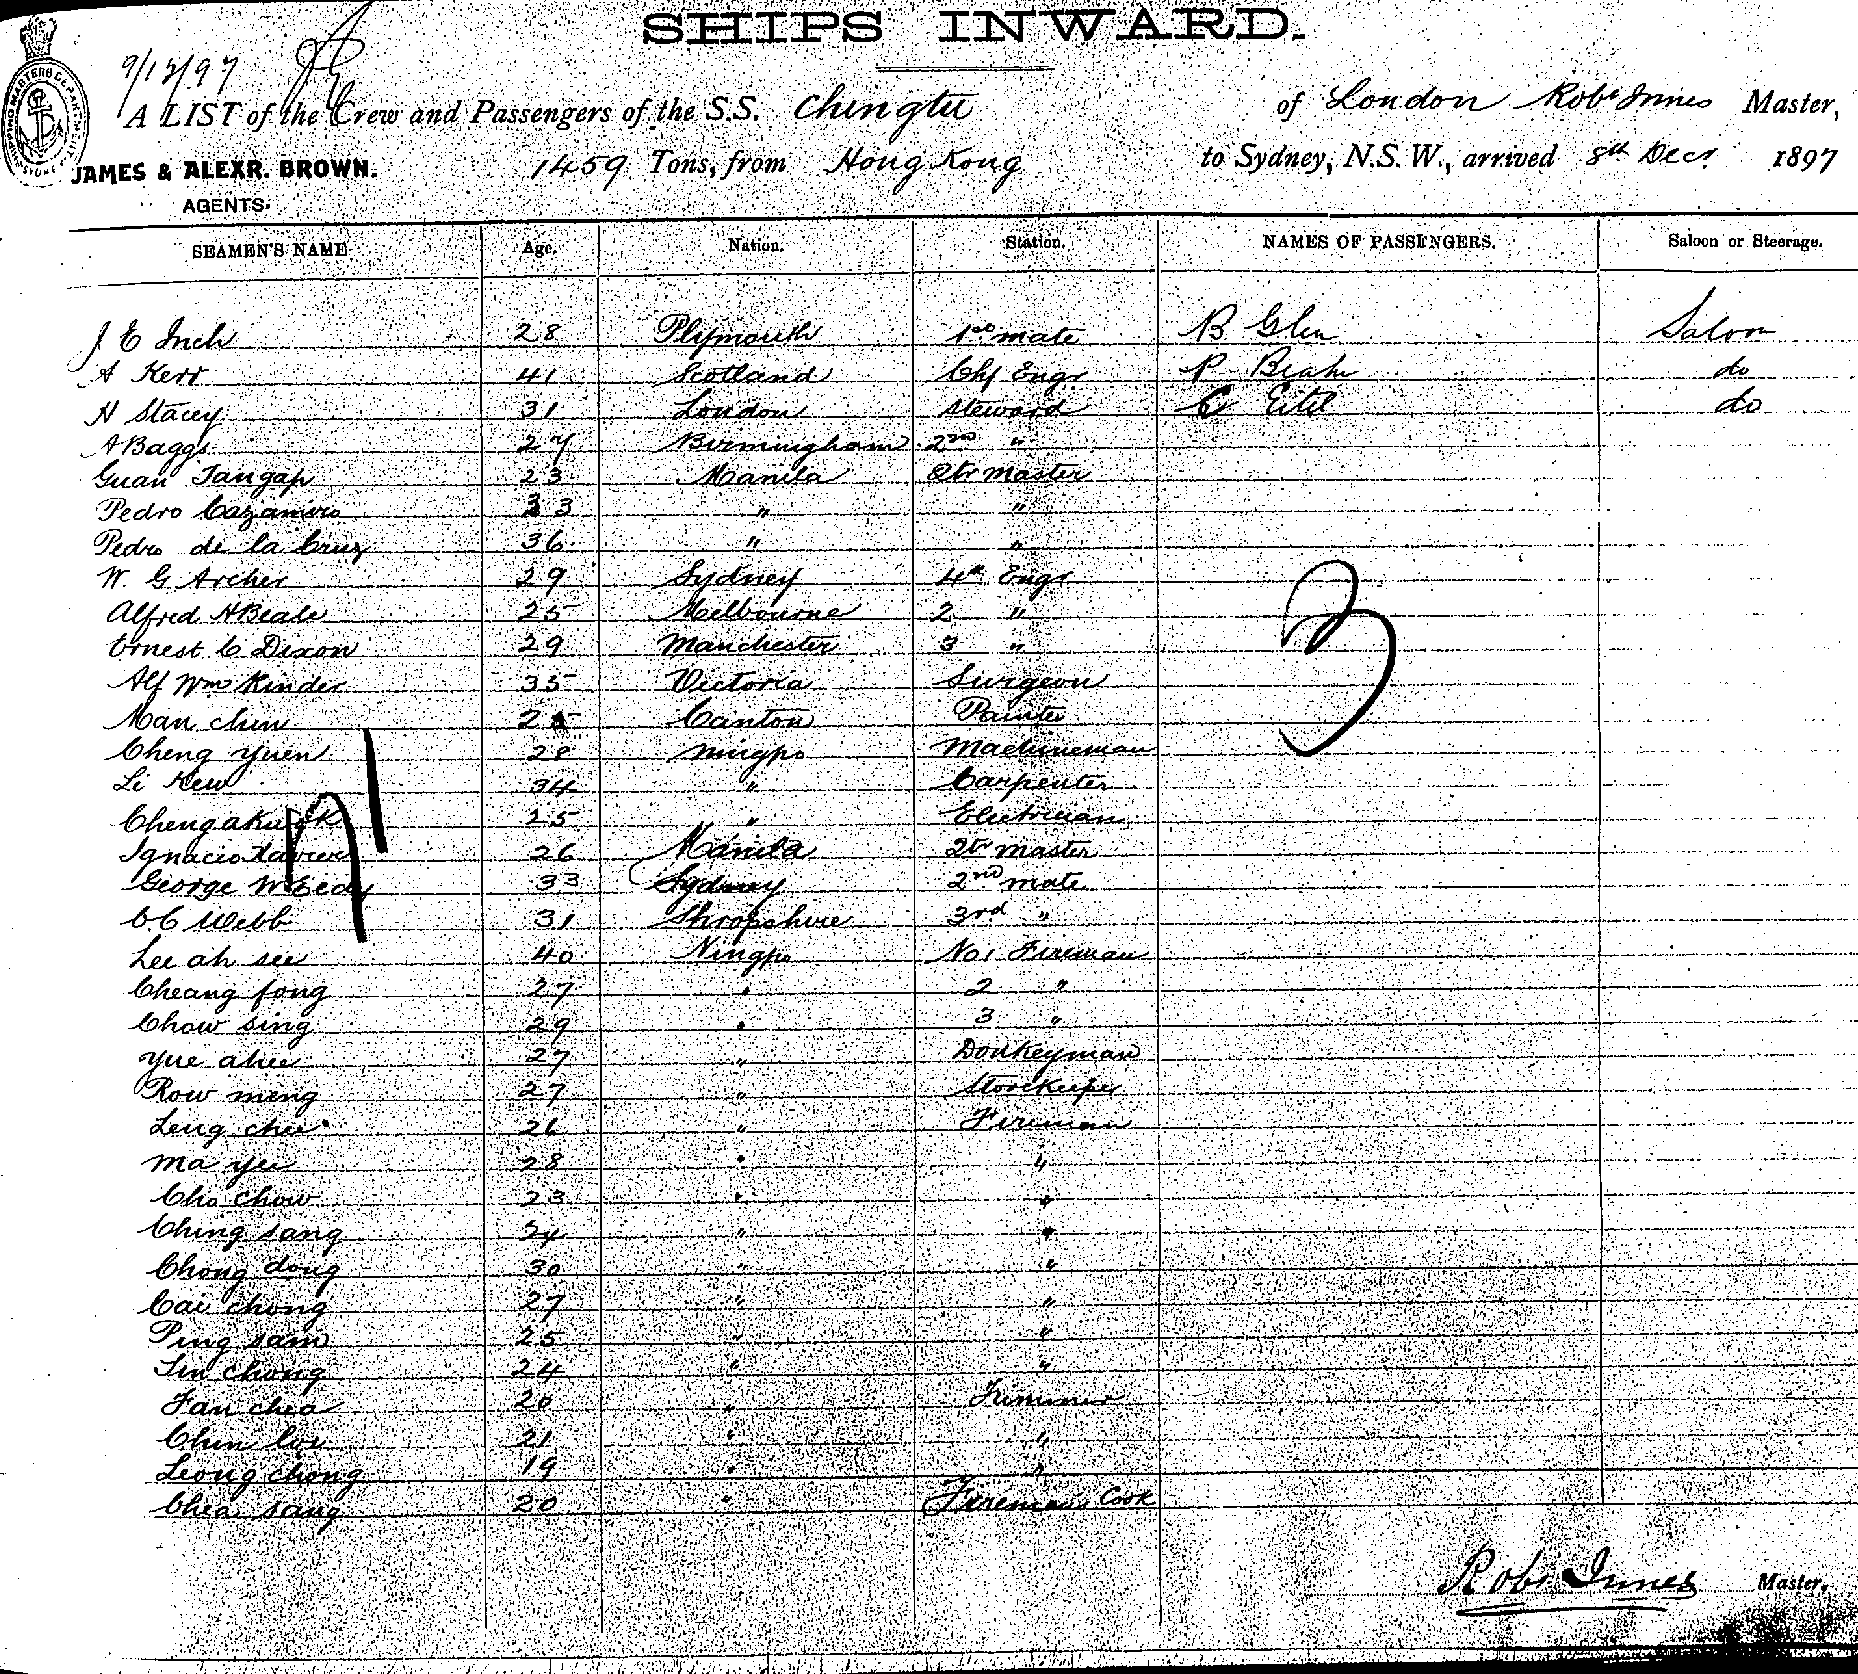 SHIPS INWARD.
9/12/97
A LIST of the Crew and Passengers of the S.S. Chingtu of London Robt Innes Master,
JAMES & ALEXR. BROWN. 1459 Tons, from Hong Kong to Sydney, N.S.W., arrived 8th Decr 1897
AGENTS.
SEAMEN'S NAME Age. Nation. Station. NAMES OF PASSENGERS. Saloon or Steerage.
J E Inch 28 Plymouth 1st mate B Glen Saloon
A Kerr 41 Scotland Chf Engr P do
H Stacey 31 London Steward C Eitel do
A Baggs 27 Birmingham 2nd "
Guan Tangap 23 Manila Qtr Master
Pedro Cazamiro 33 " "
Pedro de la Cruz 36 " "
W. G Archer 29 Sydney 4th Engr
Alfred H Beale 25 Melbourne 2 "
Ernest C Dixon 29 Manchester 3 "
Alf Wm Kinder 35 Victoria Surgeon
Man chin 25 Canton Painter
Cheng yuen 28 ningpo Machineman
Li Kew 34 " Carpenter
Cheng 25 " Electrician
Ignacio Xavier 26 Manila Qtr master
George W Eedy 33 Sydney 2nd mate
C. C Webb 31 Shropshire 3rd "
Lee ah see 40 Ningpo No 1 Fireman
Cheang fong 27 " 2 "
Chow sing 29 " 3 "
Yue ahee 27 " Donkeyman
Row meng 27 " Storekeeper
Leng chee 26 " Fireman
Ma yee 28 " "
Cho chow 23 " "
Ching sang 24 " "
Chong dong 30 " "
Cai chong 27 " "
Ping sam 25 " "
Lin chong 24 " "
Fan chea 20 " Trimmer
Chin 21 " "
Leong chong 19 " "
Chea sang 20 " Firemans Cook
3
Robt Innes Master.